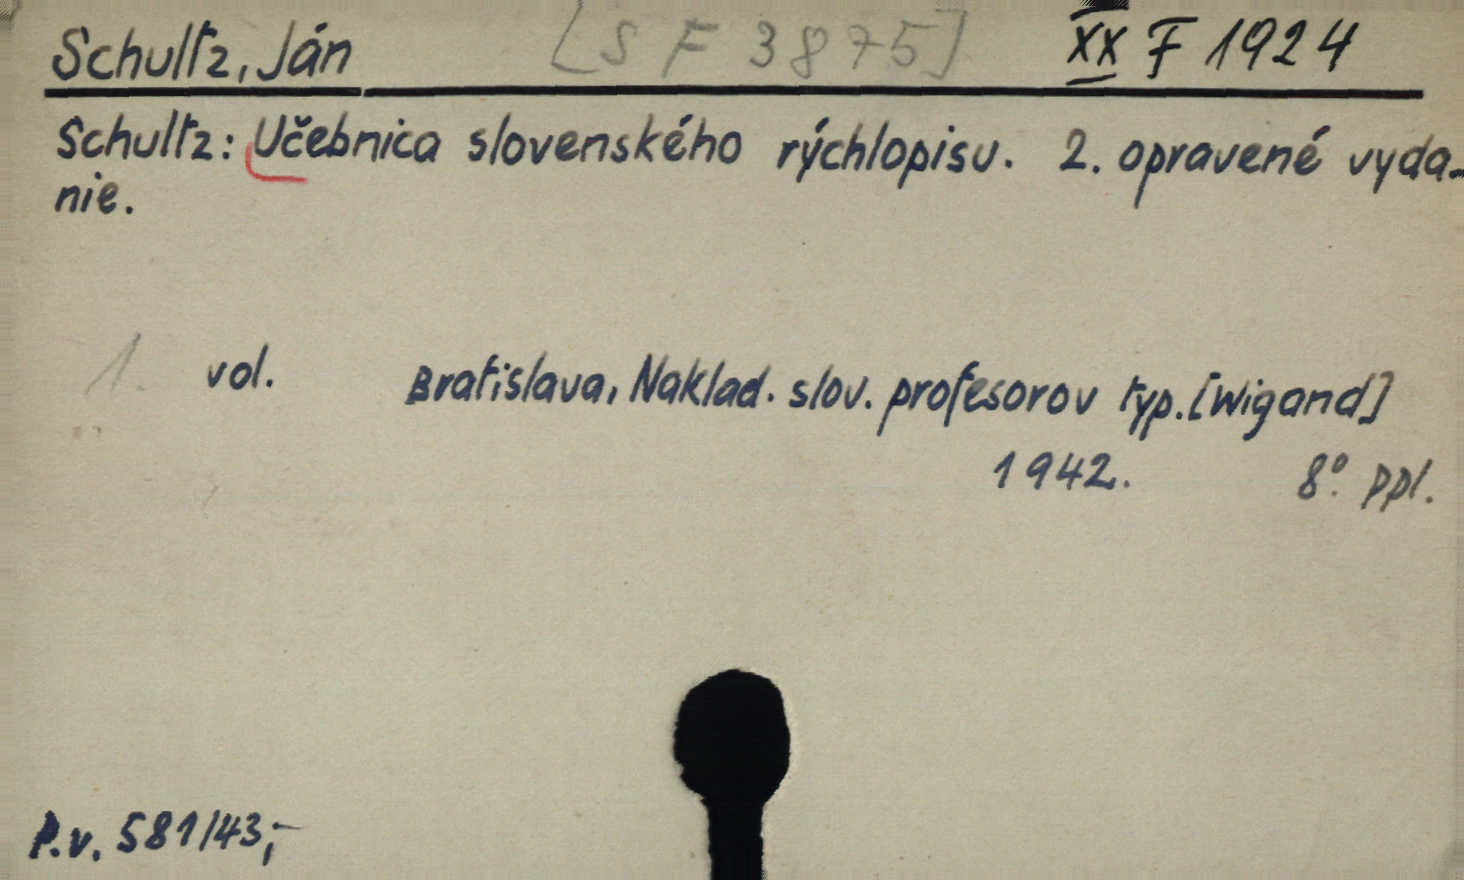 Schultz, Ján [S F 3875] XX F 1924
Schultz: Učebnica slovenského rýchlopisu. 2. opravené vyda-
nie.
1. vol. Bratislava, Naklad. slov. profesorov typ. [Wigand]
1942. 8°. ppl.
P.v. 581/43,-